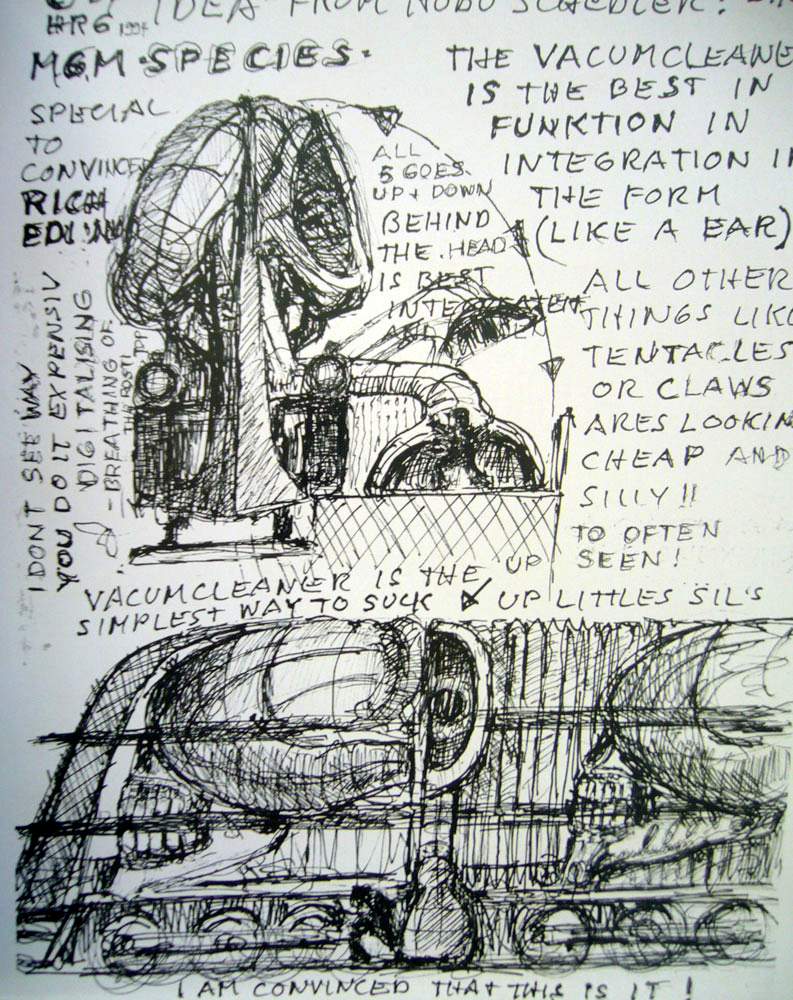 IDEA FROM NOBU SCHEDLER!
HRG 1994
MGM · SPECIES ·
SPECIAL
TO
CONVINCED
RICH
THE VACUMCLEANE
IS THE BEST IN
FUNKTION IN
INTEGRATION I
THE FORM
(LIKE A EAR)
ALL
5 GOES
UP + DOWN
BEHIND
THE HEAD
IS BEST
ALL OTHER
THINGS LIK
TENTACLES
OR CLAWS
ARES LOOKIN
CHEAP AND
SILLY!!
TO OFTEN
SEEN!
I DONT SEE WAY
YOU DO IT EXPENSIV
DIGITALISING
- BREATHING OF
VACUMCLEANER IS THE UP
SIMPLEST WAY TO SUCK UP LITTLES SIL'S
I AM CONVINCED THAT THIS IS IT!